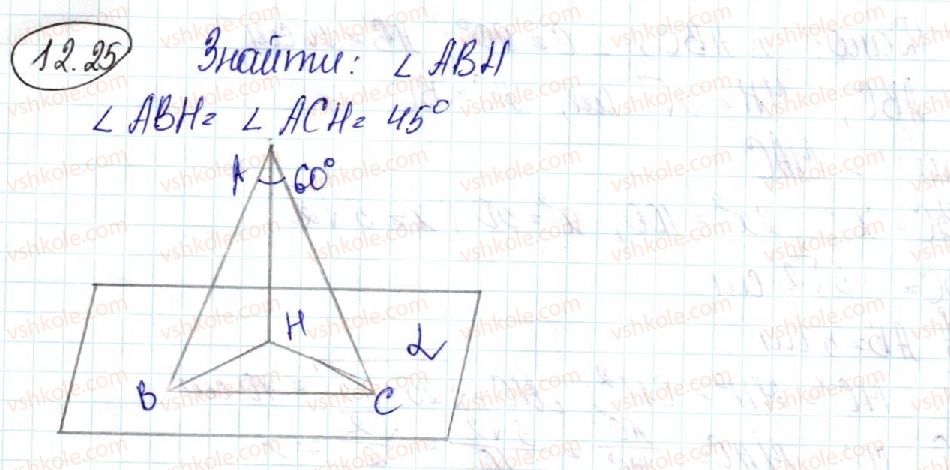 12.25 Знайти: ∠ ABH
∠ ABH = ∠ ACH = 45°
A 60°
H
α
B
C
vshkole.com